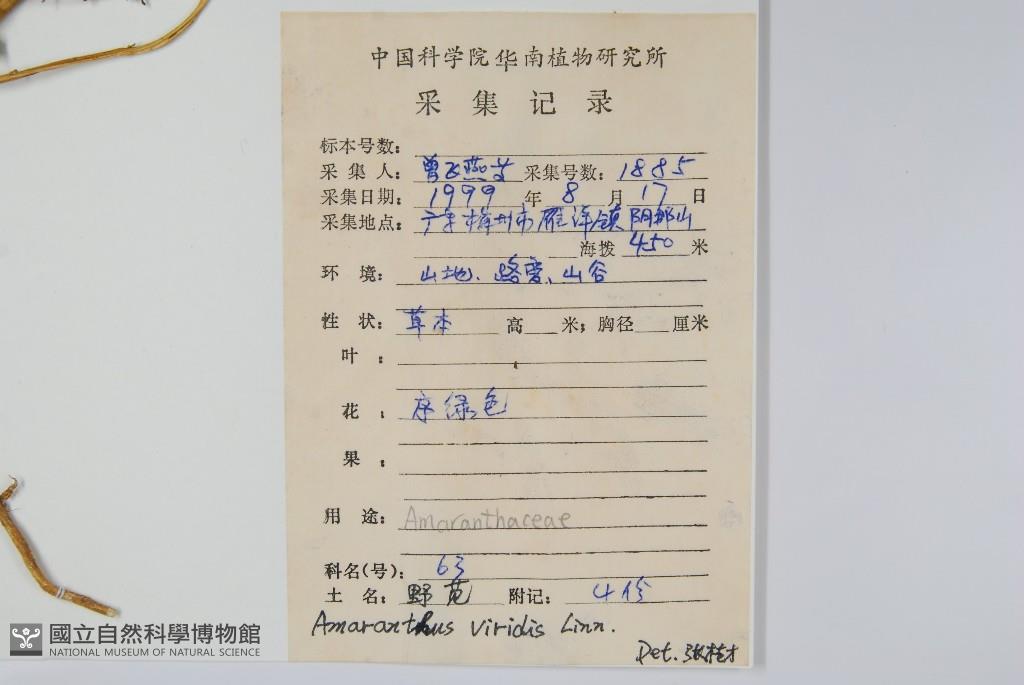 中国科学院华南植物研究所
采集记录
标本号数:
采集人: 曾飞燕等 采集号数: 1885
采集日期: 1999 年 8 月 17 日
采集地点: 广东梅州市雁洋镇阴那山
海拨 450 米
环境: 山地、路旁、山谷
性状: 草本 高 米; 胸径 厘米
叶:
花: 序绿色
果:
用途: Amaranthaceae
科名(号): 63
土名: 野苋 附记: 4份
Amaranthus viridis Linn.
Det.
國立自然科學博物館
NATIONAL MUSEUM OF NATURAL SCIENCE